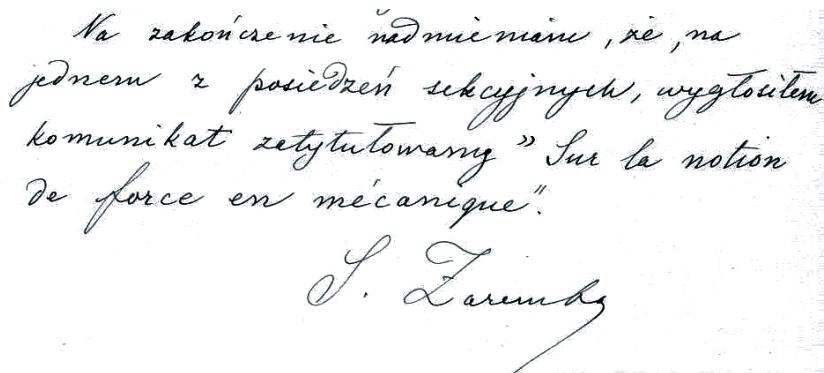 Na zakończenie nadmieniam, że, na
jednem z posiedzeń sekcyjnych, wygłosiłem
komunikat zatytułowany „Sur la notion
de force en mécanique".
S. Zaremba